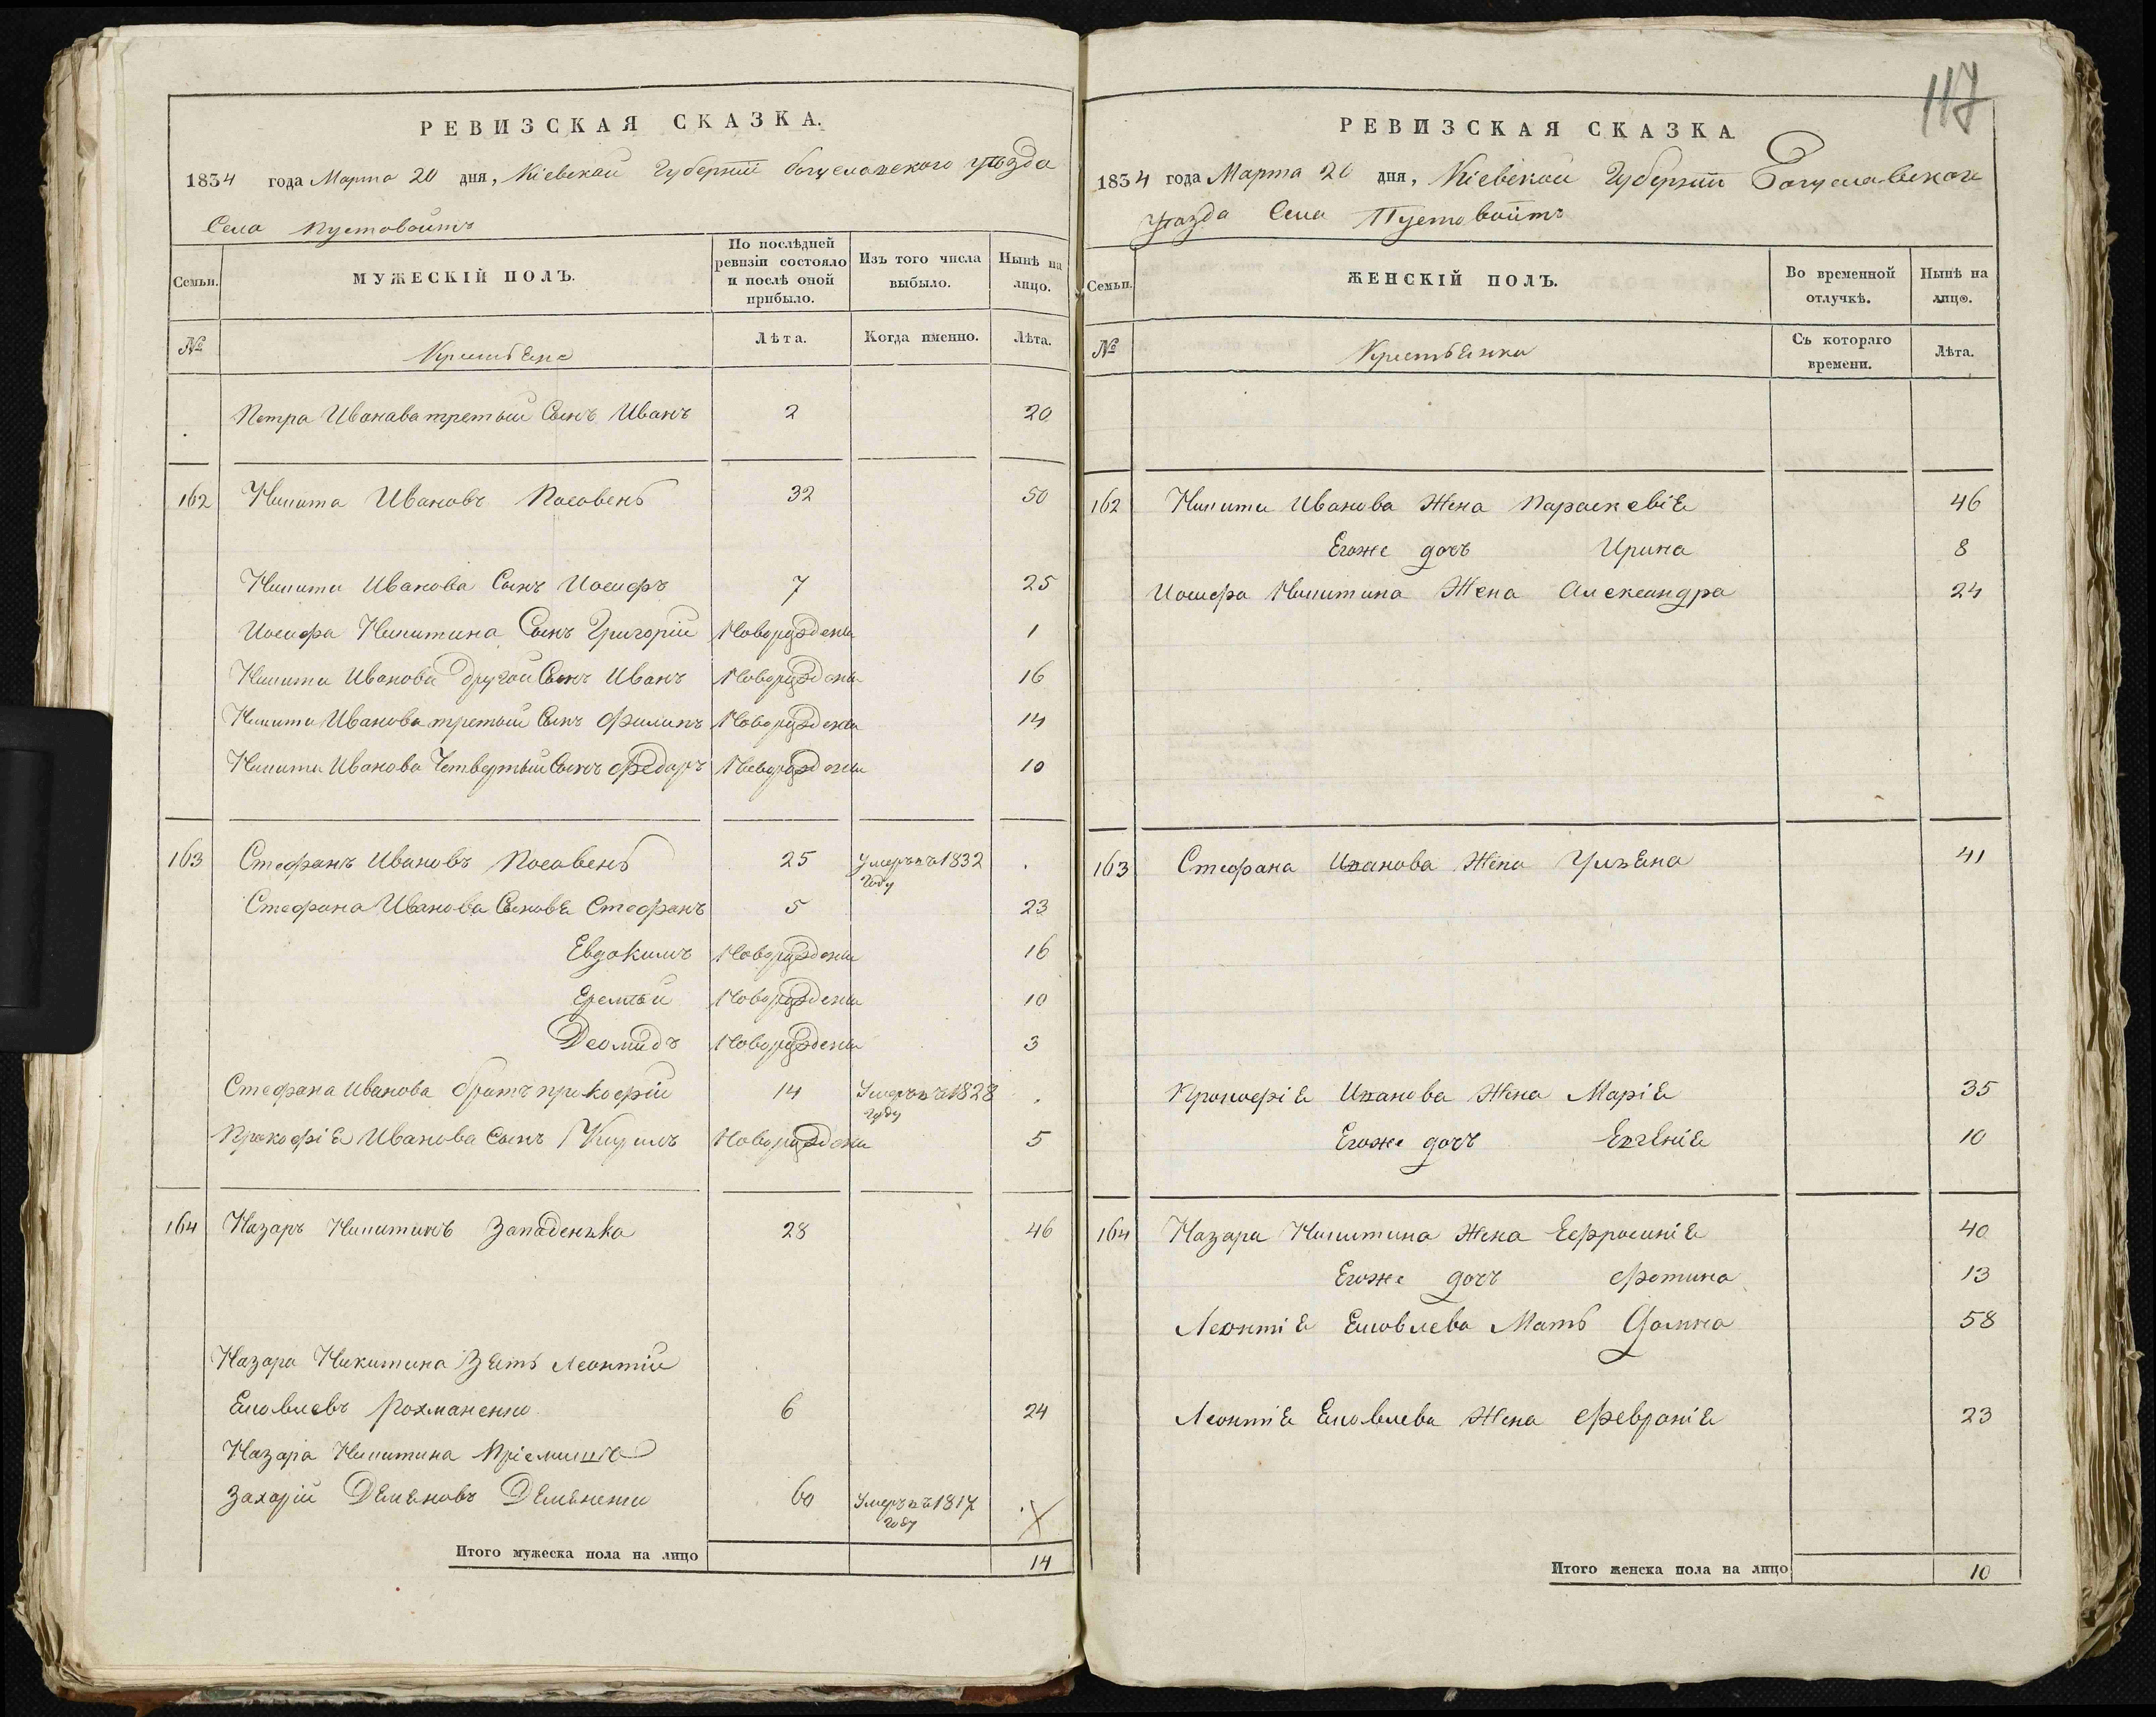 РЕВИЗСКАЯ СКАЗКА.
1834 года Марта 20 дня, Кіевской Губерніи богуславского уѣзда
Села Пустовойтъ
Семьи.
МУЖЕСКІЙ ПОЛЪ.
По послѣдней ревизіи состояло и послѣ оной прибыло.
Изъ того числа выбыло.
Нынѣ на лицо.
№
Крестьяне
Лѣта.
Когда именно.
Лѣта.
Петра Иванова третьи Сынъ Иванъ 2 20
162 Никита Ивановъ Посовень 32 50
Никити Иванова Сынъ Иосифъ 7 25
Иосифа Никитина Сынъ Григорій Новорожденъ 1
Никити Иванова другои Сынъ Иванъ Новорожденъ 16
Никити Иванова третьи Сынъ Филипъ Новорожденъ 14
Никити Иванова Четвертый Сынъ Федоръ Новорожденъ 10
163 Стефанъ Ивановъ Посовень 25 Умеръ въ 1832 Году
Стефана Иванова Сыновья Стефанъ 5 23
Евдокимъ Новорожденъ 16
Еремѣй Новорожденъ 10
Деомидъ Новорожденъ 3
Стефана Иванова братъ прокофій 14 Умеръ въ 1828 Году
Прокофія Иванова Сынъ Кирилъ Новорожденъ 5
164 Назаръ Никитинъ Западенька 28 46
Назара Никитина Зять Леонтіи
Яковлевъ Рохманенко 6 24
Назара Никитина Пріемишъ
Захарій Демяновъ Демяненко 60 Умеръ въ 1817 Году
Итого мужеска пола на лицо 14
117
РЕВИЗСКАЯ СКАЗКА
1834 года Марта 20 дня, Кіевской Губерніи Богуславского
уѣзда Села Пустовойтъ
Семьи.
ЖЕНСКІЙ ПОЛЪ.
Во временной отлучкѣ.
Нынѣ на лицо.
№
Крестьянки
Съ котораго времени.
Лѣта.
162 Никити Иванова Жена Параскевія 46
Егоже дочъ Ирина 8
Иосифа Никитина Жена Александра 24
163 Стефана Иванова Жена Ульяна 41
Прокофія Иванова Жена Марія 35
Егоже дочъ Евгенія 10
164 Назара Никитина Жена Ефросинія 40
Егоже дочъ Фотина 13
Леонтія Яковлева Мать Домна 58
Леонтія Яковлева Жена Февронія 23
Итого женска пола на лицо 10